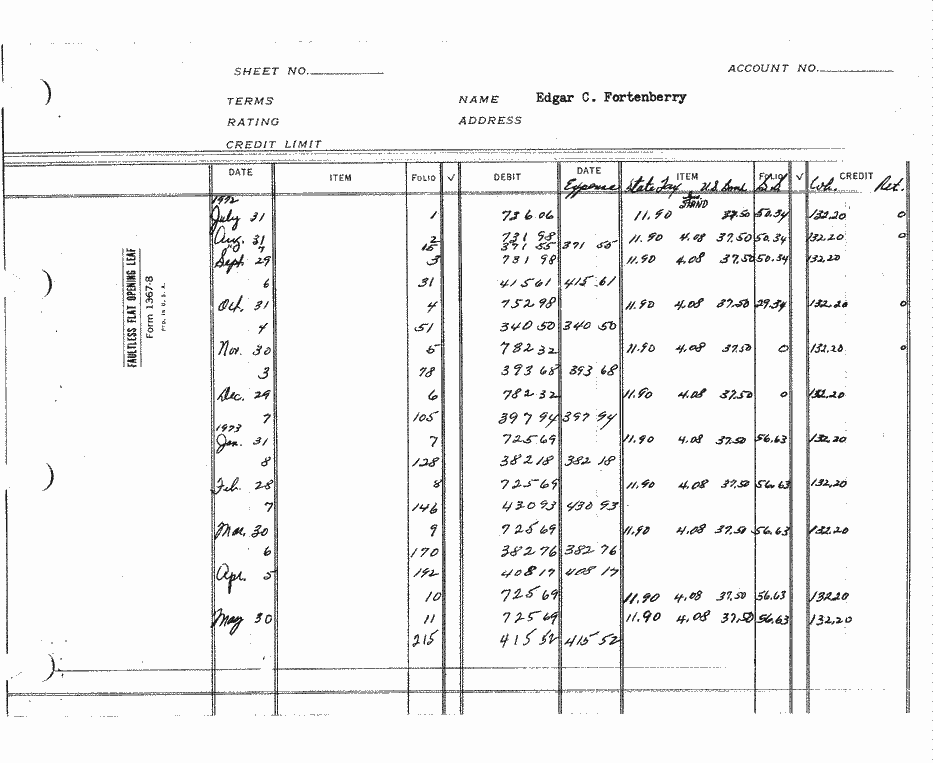 SHEET NO.
ACCOUNT NO.
TERMS NAME Edgar C. Fortenberry
RATING ADDRESS
CREDIT LIMIT
DATE ITEM FOLIO √ DEBIT DATE ITEM FOLIO √ CREDIT
Expense State Tax U.S. Bond S.S Wh. Ret.
STAND
1972
July 31 1 736.06 11.90 37.50 50.34 132.20 0
Aug. 31 2 731 98 11.90 4.08 37.50 50.34 132.20 0
" 7 15 371 55 371 55
Sept. 29 3 731 98 11.90 4.08 37.50 50.34 132.20
6 31 415 61 415.61
Oct. 31 4 752 98 11.90 4.08 37.50 29.34 132.20 0
4 51 340 50 340 50
Nov. 30 5 782 32 11.90 4.08 37.50 0 132.20 0
3 78 393 68 393 68
Dec. 29 6 782 32 11.90 4.08 37.50 0 132.20
7 105 397 94 397 94
1973
Jan. 31 7 725 69 11.90 4.08 37.50 56.63 132.20
8 128 382 18 382 18
Feb. 28 8 725 69 11.90 4.08 37.50 56.63 132.20
7 146 430 93 430 93
Mar. 30 9 725 69 11.90 4.08 37.50 56.63 132.20
6 170 382 76 382 76
Apr. 5 192 408 17 408 17
10 725 69 11.90 4.08 37.50 56.63 132.20
May 30 11 725 69 11.90 4.08 37.50 56.63 132.20
215 415 52 415 52
FAULTLESS FLAT OPENING LEAF
Form 1367-8
PTD. IN U.S.A.